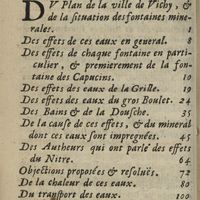 DV Plan de la ville de Vichy, &
de la situation des fontaines mine-
rales. 1
Des effets de ces eaux en general. 8
Des effets de chaque fontaine en parti-
culier, & premierement de la fon-
taine des Capucins. 10
Des effets des eaux de la Grille. 19
Des effets des eaux du gros Boulet. 24
Des Bains & de la Dousche. 35
De la cause de ces effets, & du mineral
dont ces eaux sont impregnées. 45
Des Autheurs qui ont parlé des effets
du Nitre. 64
Objections proposées & resoluës. 72
De la chaleur de ces eaux. 80
Du transport des eaux. 100